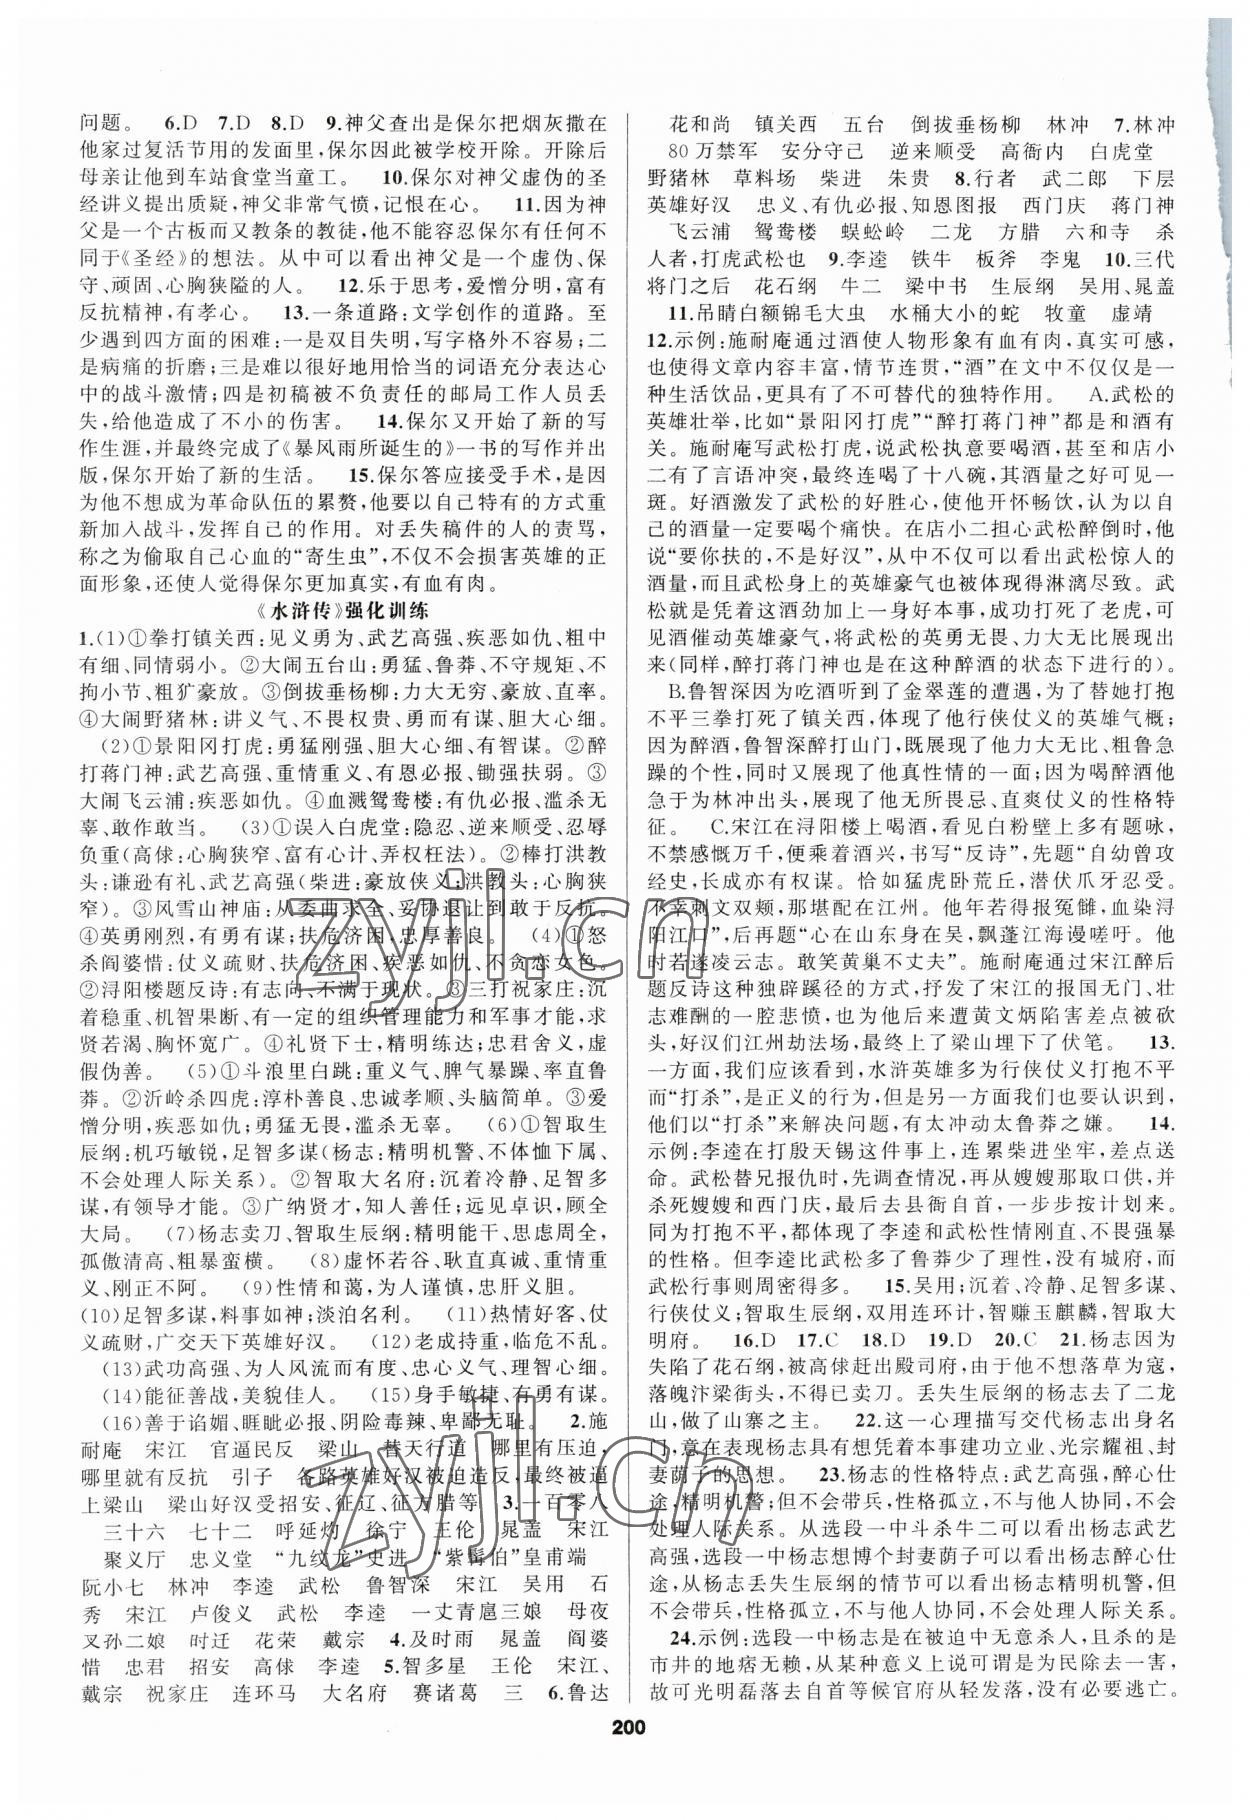 问题。 6.D 7.D 8.D 9.神父查出是保尔把烟灰撒在
他家过复活节用的发面里,保尔因此被学校开除。开除后
母亲让他到车站食堂当童工。 10.保尔对神父虚伪的圣
经讲义提出质疑,神父非常气愤,记恨在心。 11.因为神
父是一个古板而又教条的教徒,他不能容忍保尔有任何不
同于《圣经》的想法。从中可以看出神父是一个虚伪、保
守、顽固、心胸狭隘的人。 12.乐于思考,爱憎分明,富有
反抗精神,有孝心。 13.一条道路:文学创作的道路。至
少遇到四方面的困难:一是双目失明,写字格外不易;二
是病痛的折磨;三是难以很好地用恰当的词语充分表达心
中的战斗激情;四是初稿被不负责任的邮局工作人员丢
失,给他造成了不小的伤害。 14.保尔又开始了新的写
作生涯,并最终完成了《暴风雨所诞生的》一书的写作并出
版,保尔开始了新的生活。 15.保尔答应接受手术,是因
为他不想成为革命队伍的累赘,他要以自己特有的方式重
新加入战斗,发挥自己的作用。对丢失稿件的人的责骂,
称之为偷取自己心血的“寄生虫”,不仅不会损害英雄的正
面形象,还使人觉得保尔更加真实,有血有肉。
《水浒传》强化训练
1.(1)①拳打镇关西:见义勇为、武艺高强、疾恶如仇、粗中
有细、同情弱小。②大闹五台山:勇猛、鲁莽、不守规矩、不
拘小节、粗犷豪放。③倒拔垂杨柳:力大无穷、豪放、直率。
④大闹野猪林:讲义气、不畏权贵、勇而有谋、胆大心细。
(2)①景阳冈打虎:勇猛刚强、胆大心细、有智谋。②醉
打蒋门神:武艺高强、重情重义、有恩必报、锄强扶弱。③
大闹飞云浦:疾恶如仇。④血溅鸳鸯楼:有仇必报、滥杀无
辜、敢作敢当。 (3)①误入白虎堂:隐忍、逆来顺受、忍辱
负重(高俅:心胸狭窄、富有心计、弄权枉法)。②棒打洪教
头:谦逊有礼、武艺高强(柴进:豪放侠义;洪教头:心胸狭
窄)。③风雪山神庙:从委曲求全、妥协退让到奋于反抗。
④英勇刚烈,有勇有谋;扶危济困,忠厚善良。 (4)①怒
杀阎婆惜:仗义疏财、扶危济困、不贪恋女色。
②浔阳楼题反诗:有志向、不满于现状。③三打祝家庄:沉
着稳重、机智果断、有一定的组织管理能力和军事才能,求
贤若渴、胸怀宽广。④礼贤下士,精明练达;忠君舍义,虚
假伪善。 (5)①斗浪里白跳:重义气、脾气暴躁、率直鲁
莽。②沂岭杀四虎:淳朴善良、忠诚孝顺、头脑简单。③爱
憎分明,疾恶如仇;勇猛无畏,滥杀无辜。 (6)①智取生
辰纲:机巧敏锐,足智多谋(杨志:精明机警、不体恤下属、
不会处理人际关系)。②智取大名府:沉着冷静、足智多
谋,有领导才能。③广纳贤才,知人善任;远见卓识,顾全
大局。 (7)杨志卖刀、智取生辰纲:精明能干、思虑周全,
孤傲清高、粗暴蛮横。 (8)虚怀若谷、耿直真诚、重情重
义、刚正不阿。 (9)性情和蔼,为人谨慎,忠肝义胆。
(10)足智多谋,料事如神;淡泊名利。 (11)热情好客、仗
义疏财,广交天下英雄好汉。 (12)老成持重,临危不乱。
(13)武功高强、为人风流而有度、忠心义气、理智心细。
(14)能征善战,美貌佳人。 (15)身手敏捷、有勇有谋。
(16)善于谄媚、睚眦必报、阴险毒辣、卑鄙无耻。 2.施
耐庵 宋江 官逼民反 梁山 替天行道 哪里有压迫,
哪里就有反抗 引子 各路英雄好汉被迫造反,最终被逼
上梁山 梁山好汉受招安、征辽、征方腊等 3.一百零八
三十六 七十二 呼延灼 徐宁 王伦 晁盖 宋江
聚义厅 忠义堂 “九纹龙”史进 “紫髯伯”皇甫端
阮小七 林冲 李逵 武松 鲁智深 宋江 吴用 石
秀 宋江 卢俊义 武松 李逵 一丈青扈三娘 母夜
叉孙二娘 时迁 花荣 戴宗 4.及时雨 晁盖 阎婆
惜 忠君 招安 高俅 李逵 5.智多星 王伦 宋江、
戴宗 祝家庄 连环马 大名府 赛诸葛 三 6.鲁达
花和尚 镇关西 五台 倒拔垂杨柳 林冲 7.林冲
80万禁军 安分守己 逆来顺受 高衙内 白虎堂
野猪林 草料场 柴进 朱贵 8.行者 武二郎 下层
英雄好汉 忠义、有仇必报、知恩图报 西门庆 蒋门神
飞云浦 鸳鸯楼 蜈蚣岭 二龙 方腊 六和寺 杀
人者,打虎武松也 9.李逵 铁牛 板斧 李鬼 10.三代
将门之后 花石纲 牛二 梁中书 生辰纲 吴用、晁盖
11.吊睛白额锦毛大虫 水桶大小的蛇 牧童 虚靖
12.示例:施耐庵通过酒使人物形象有血有肉,真实可感,
也使得文章内容丰富,情节连贯,“酒”在文中不仅仅是一
种生活饮品,更具有了不可替代的独特作用。 A.武松的
英雄壮举,比如“景阳冈打虎”“醉打蒋门神”都是和酒有
关。施耐庵写武松打虎,说武松执意要喝酒,甚至和店小
二有了言语冲突,最终连喝了十八碗,其酒量之好可见一
斑。好酒激发了武松的好胜心,使他开怀畅饮,认为以自
己的酒量一定要喝个痛快。在店小二担心武松醉倒时,他
说“要你扶的,不是好汉”,从中不仅可以看出武松惊人的
酒量,而且武松身上的英雄豪气也被体现得淋漓尽致。武
松就是凭着这酒劲加上一身好本事,成功打死了老虎,可
见酒催动英雄豪气,将武松的英勇无畏、力大无比展现出
来(同样,醉打蒋门神也是在这种醉酒的状态下进行的)。
B.鲁智深因为吃酒听到了金翠莲的遭遇,为了替她打抱
不平三拳打死了镇关西,体现了他行侠仗义的英雄气概;
因为醉酒,鲁智深醉打山门,既展现了他力大无比、粗鲁急
躁的个性,又展现了他真性情的一面;因为喝醉酒他
急于为林冲出头,展现了他无所畏忌、直爽仗义的性格特
征。 C.宋江在浔阳楼上喝酒,看见白粉壁上多有题咏,
不禁感慨万千,便乘着酒兴,书写“反诗”,先题“自幼曾攻
经史,长成亦有权谋。恰如猛虎卧荒丘,潜伏爪牙忍受。
不幸刺文双颊,那堪配在江州。他年若得报冤雠,血染浔
阳江口”,后再题“心在山东身在吴,飘蓬江海谩嗟吁。他
时若遂凌云志。敢笑黄巢不丈夫”。施耐庵通过宋江醉后
题反诗这种独辟蹊径的方式,抒发了宋江的报国无门、壮
志难酬的一腔悲愤,也为他后来遭黄文炳陷害差点被砍
头,好汉们江州劫法场,最终上了梁山埋下了伏笔。 13.
一方面,我们应该看到,水浒英雄多为行侠仗义打抱不平
而“打杀”,是正义的行为,但另一方面我们也要认识到,
他们以“打杀”来解决问题,有太冲动太鲁莽之嫌。 14.
示例:李逵在打殷天锡这件事上,连累柴进坐牢,差点送
命。武松替兄报仇时,先调查情况,再从嫂嫂那取口供,并
杀死嫂嫂和西门庆,最后去县衙自首,一步步按计划来。
同为打抱不平,都体现了李逵和武松性情刚直、不畏强暴
的性格。但李逵比武松多了鲁莽少了理性,没有城府,而
武松行事则周密得多。 15.吴用;沉着、冷静、足智多谋,
行侠仗义;智取生辰纲,双用连环计,智赚玉麒麟,智取大
明府。 16.D 17.C 18.D 19.D 20.C 21.杨志因为
失陷了花石纲,被高俅赶出殿司府,由于他不想落草为寇,
落魄汴梁街头,不得已卖刀。丢失生辰纲的杨志去了二龙
山,做了山寨之主。 22.这一心理描写交代杨志出身名
门,意在表现杨志具有想凭着本事建功立业、光宗耀祖、封
妻荫子的思想。 23.杨志的性格特点:武艺高强,醉心仕
途,精明机警;但不会带兵,性格孤立,不与他人协同,不会
处理人际关系。从选段一中斗杀牛二可以看出杨志武艺
高强,选段一中杨志想博个封妻荫子可以看出杨志醉心仕
途,从杨志丢失生辰纲的情节可以看出杨志精明机警,但
不会带兵,性格孤立,不与他人协同,不会处理人际关系。
24.示例:选段一中杨志在被迫中无意杀人,且杀的是
市井的地痞无赖,从某种意义上说可谓是为民除去一害,
故可光明磊落去自首等候官府从轻发落,没有必要逃亡。
200
zyjl.cn
zyjl.cn